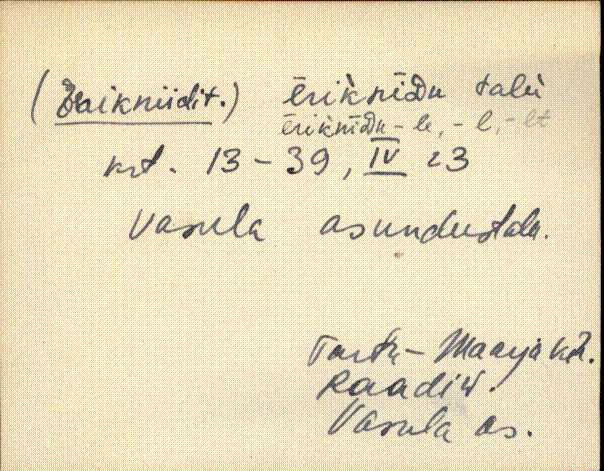 ēriknīdu talu
ēriknīdu -le, -l, -lt
krt. 13-39, IV 23
Vasula asundustalu.
Tartu-Maarja khk.
Raadi v.
Vasula as.